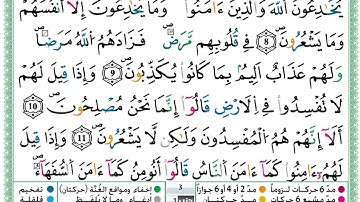 يُخَٰدِعُونَ ٱللَّهَ وَٱلَّذِينَ ءَامَنُوا۟ وَمَا يَخْدَعُونَ إِلَّآ أَنفُسَهُمْ
وَمَا يَشْعُرُونَ ٨ فِى قُلُوبِهِم مَّرَضٌ فَزَادَهُمُ ٱللَّهُ مَرَضًا ۖ
وَلَهُمْ عَذَابٌ أَلِيمٌۢ بِمَا كَانُوا۟ يَكْذِبُونَ ٩ وَإِذَا قِيلَ لَهُمْ
لَا تُفْسِدُوا۟ فِى ٱلْأَرْضِ قَالُوٓا۟ إِنَّمَا نَحْنُ مُصْلِحُونَ ١٠
أَلَآ إِنَّهُمْ هُمُ ٱلْمُفْسِدُونَ وَلَٰكِن لَّا يَشْعُرُونَ ١١ وَإِذَا قِيلَ
لَهُمْ ءَامِنُوا۟ كَمَآ ءَامَنَ ٱلنَّاسُ قَالُوٓا۟ أَنُؤْمِنُ كَمَآ ءَامَنَ ٱلسُّفَهَآءُ ۗ
مدّ 6 حركات لزوماً مدّ 2 أو 4 أو 6 جوازاً 3 إخفاء ومواقع الغُنَّة (حركتان) تفخيم
مدّ مشبع 6 حركات مدّ حركتان إدغام ، وما لا يُلفظ قلقلة